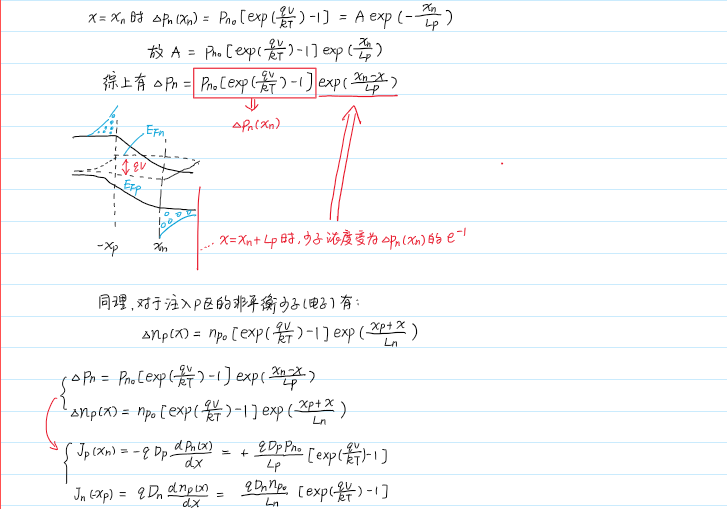 x = xn 时 Δpn(xn) = pn₀[exp(qV/kT) −1] = A exp(−xn/Lp)
故 A = pn₀[exp(qV/kT) −1] exp(xn/Lp)
综上有 Δpn = pn₀[exp(qV/kT) −1] exp((xn−x)/Lp)
Δpn(xn)
EFn
qV
EFp
−xp xn
x=xn+Lp时,少子浓度变为Δpn(xn)的e⁻¹
同理,对于注入P区的非平衡少子(电子)有:
Δnp(x) = np₀[exp(qV/kT) −1] exp((xp+x)/Ln)
Δpn = pn₀[exp(qV/kT) −1] exp((xn−x)/Lp)
Δnp(x) = np₀[exp(qV/kT) −1] exp((xp+x)/Ln)
Jp(xn) = −qDp dpn(x)/dx = + qDppn₀/Lp [exp(qV/kT) −1]
Jn(-xp) = qDn dnp(x)/dx = qDnnp₀/Ln [exp(qV/kT) −1]